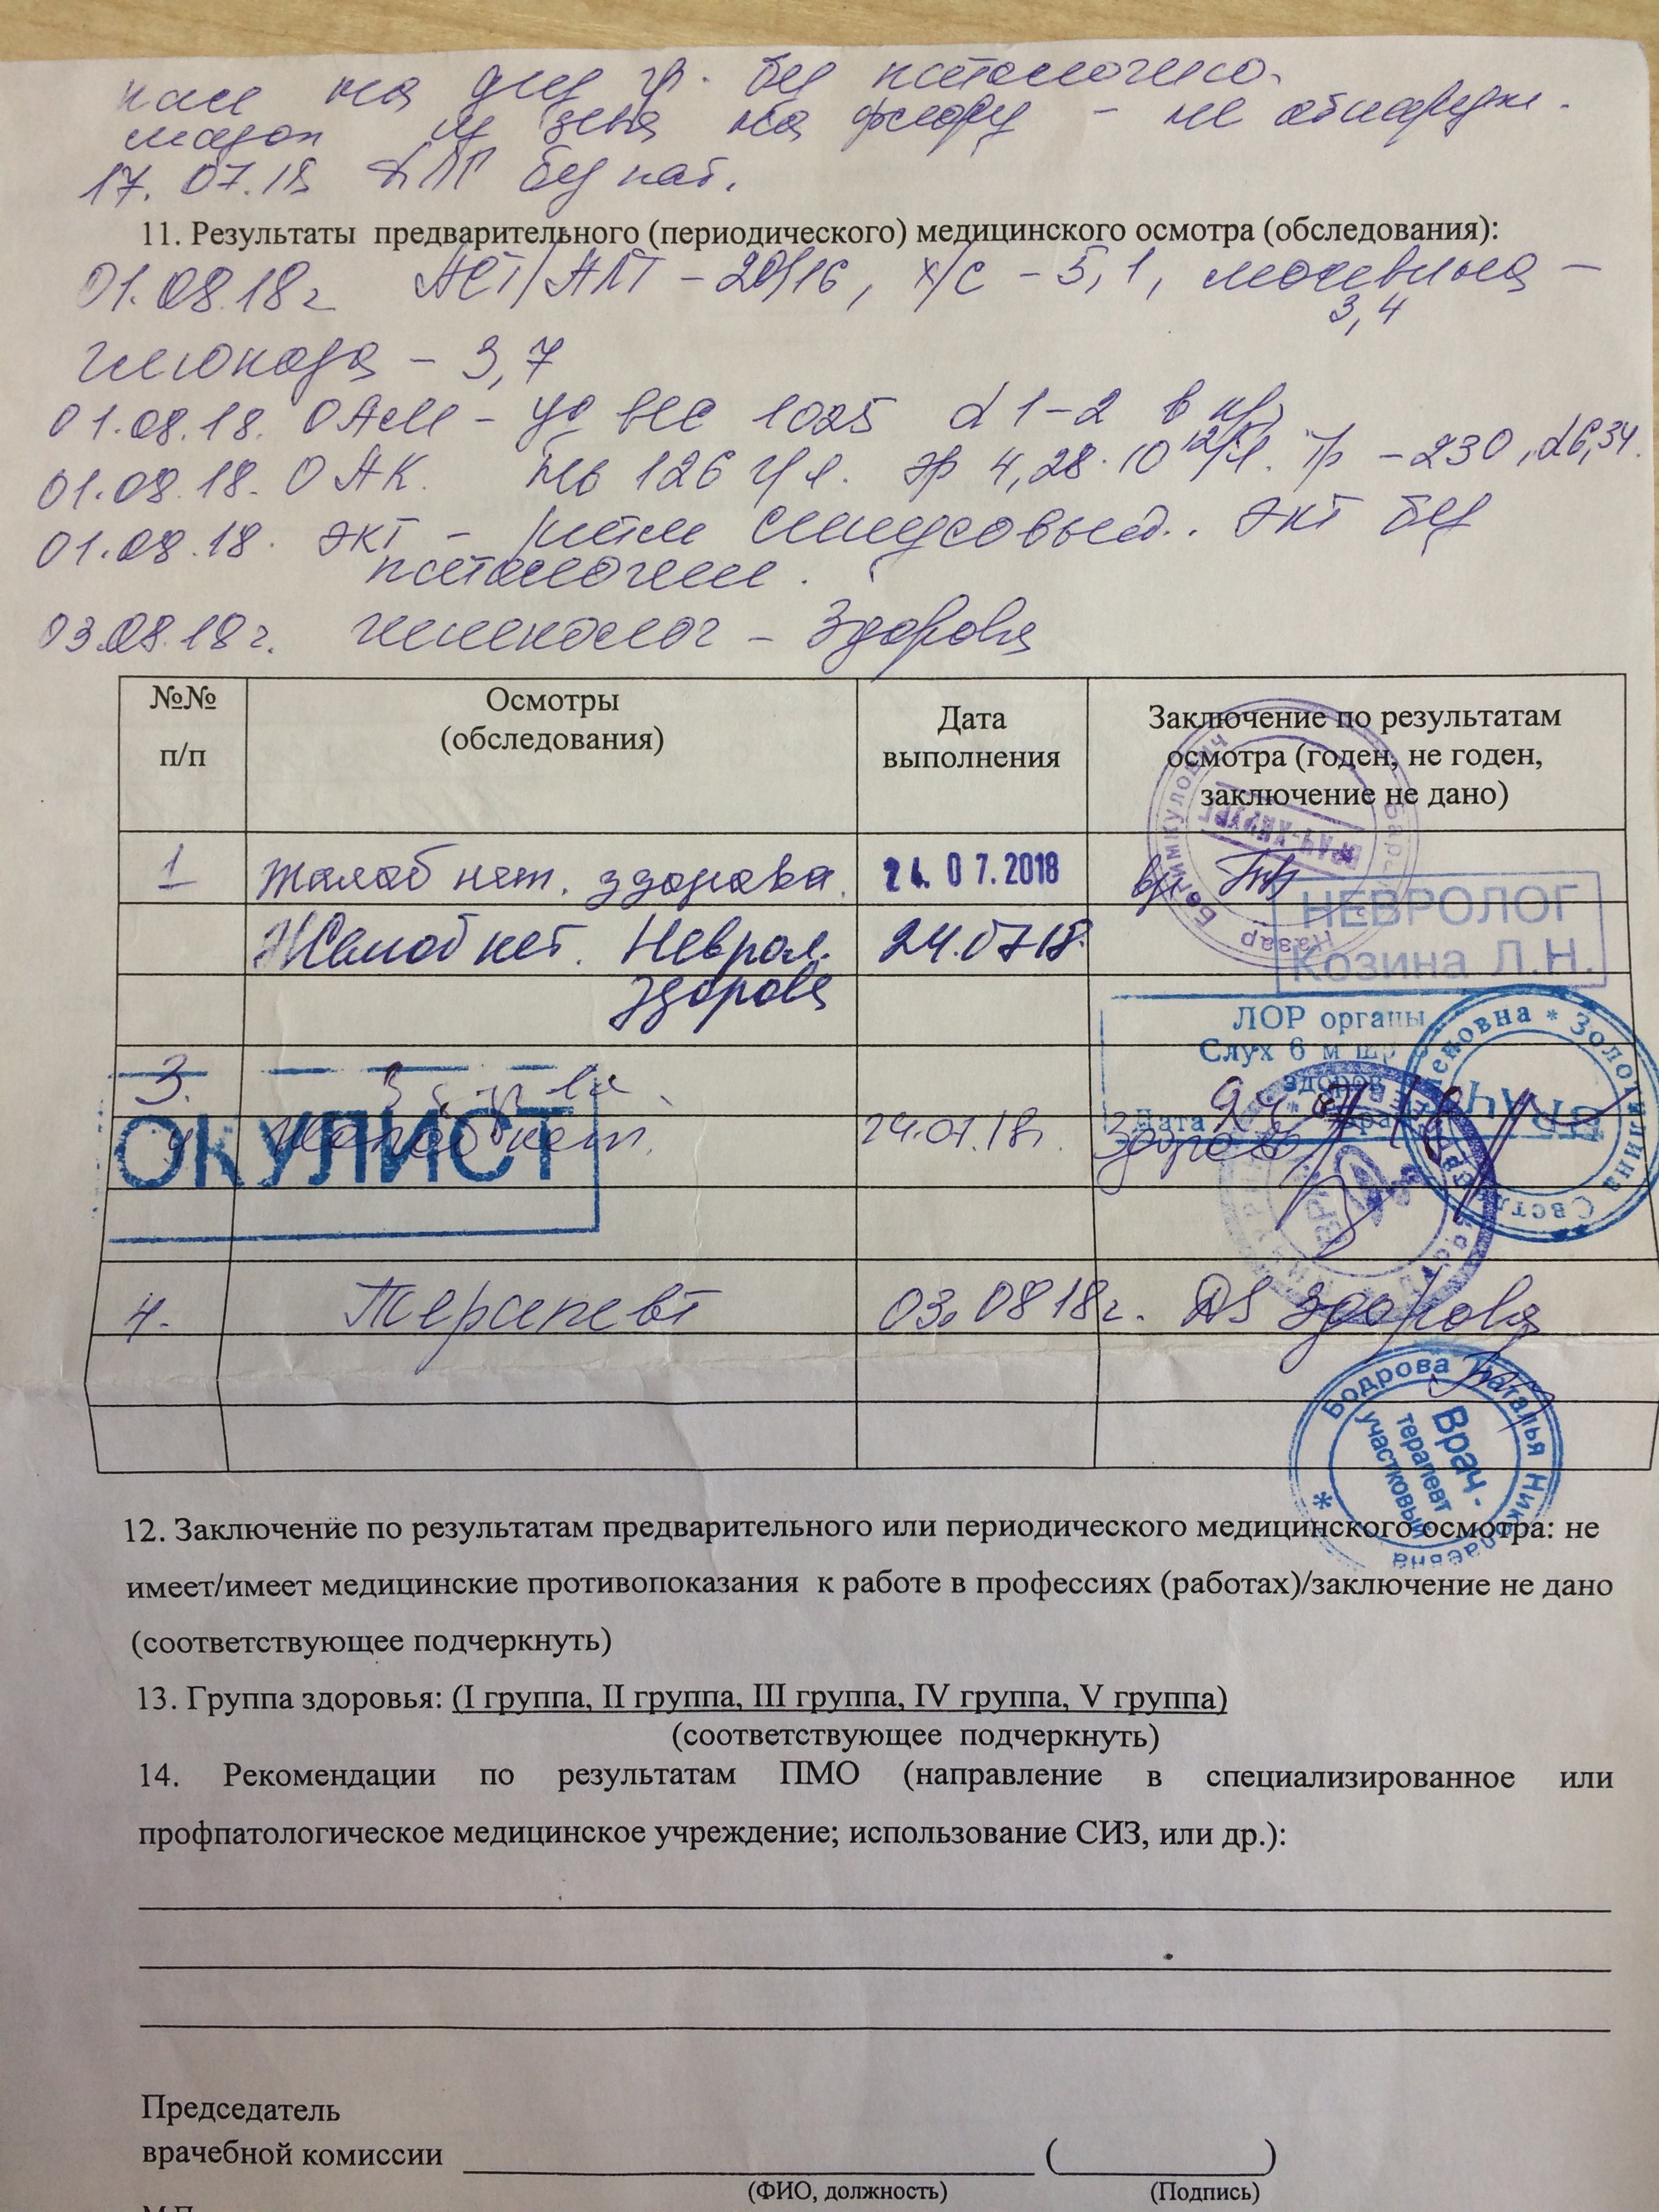 кал на диз гр. без патологии.
мазок из зева на флору - не обнаруж.
17.07.18 ДПП без пат.
11. Результаты предварительного (периодического) медицинского осмотра (обследования):
01.08.18г АСТ/АЛТ - 20/16, х/с - 5,1, мочевина -
3,4
глюкоза - 3,7
01.08.18. ОАМ - уд вес 1025 d 1-2 в п/з
01.08.18. ОАК. Нв 126 г/л. эр 4,28·10¹²/л. Тр - 230, d6,34.
01.08.18. ЭКГ - ритм синусовый. ЭКГ без
патологии.
03.08.18г. гинеколог - Здорова
№№ п/п
Осмотры (обследования)
Дата выполнения
Заключение по результатам осмотра (годен, не годен, заключение не дано)
ВРАЧ-ХИРУРГ
1 Жалоб нет. здорова. 24.07.2018
НЕВРОЛОГ
Козина Л.Н.
Жалоб нет. Неврол. 24.07.18.
здорова
ЛОР органы
Слух 6 м шр
здоров
Дата
3. Здорова
ОКУЛИСТ
Жалоб нет. 24.07.18г. Здорова
ВРАЧ
4. Терапевт 03.08.18г. DS Здорова
Бодрова Наталья Николаевна
Врач -
терапевт
участковый
12. Заключение по результатам предварительного или периодического медицинского осмотра: не
имеет/имеет медицинские противопоказания к работе в профессиях (работах)/заключение не дано
(соответствующее подчеркнуть)
13. Группа здоровья: (I группа, II группа, III группа, IV группа, V группа)
(соответствующее подчеркнуть)
14. Рекомендации по результатам ПМО (направление в специализированное или
профпатологическое медицинское учреждение; использование СИЗ, или др.):
Председатель
врачебной комиссии ( )
(ФИО, должность) (Подпись)